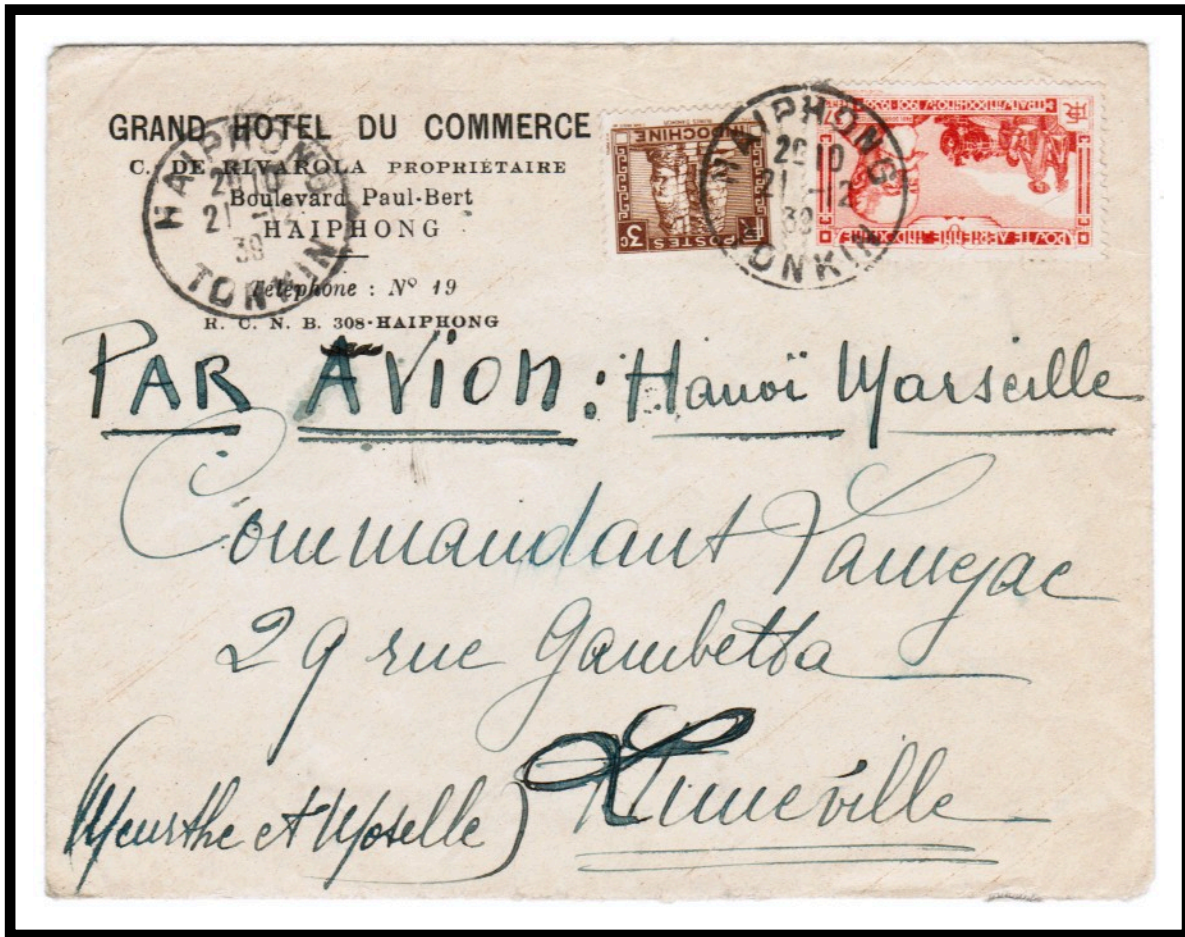 GRAND HOTEL DU COMMERCE
C. DE RIVAROLA PROPRIÉTAIRE
Boulevard Paul-Bert
HAIPHONG
Téléphone : Nº 19
R. C. N. B. 308-HAIPHONG
HAIPHONG
20 10
21 -12
39
TONKIN
INDOCHINE
POSTES
3c
HAIPHONG
20 10
21 -12
39
TONKIN
TRANSINDOCHINOIS 1901-1936
RF
POSTE AÉRIENNE INDOCHINE
PAR AVION : Hanoï Marseille
Commandant
29 rue Gambetta
Lunéville
(Meurthe et Moselle)